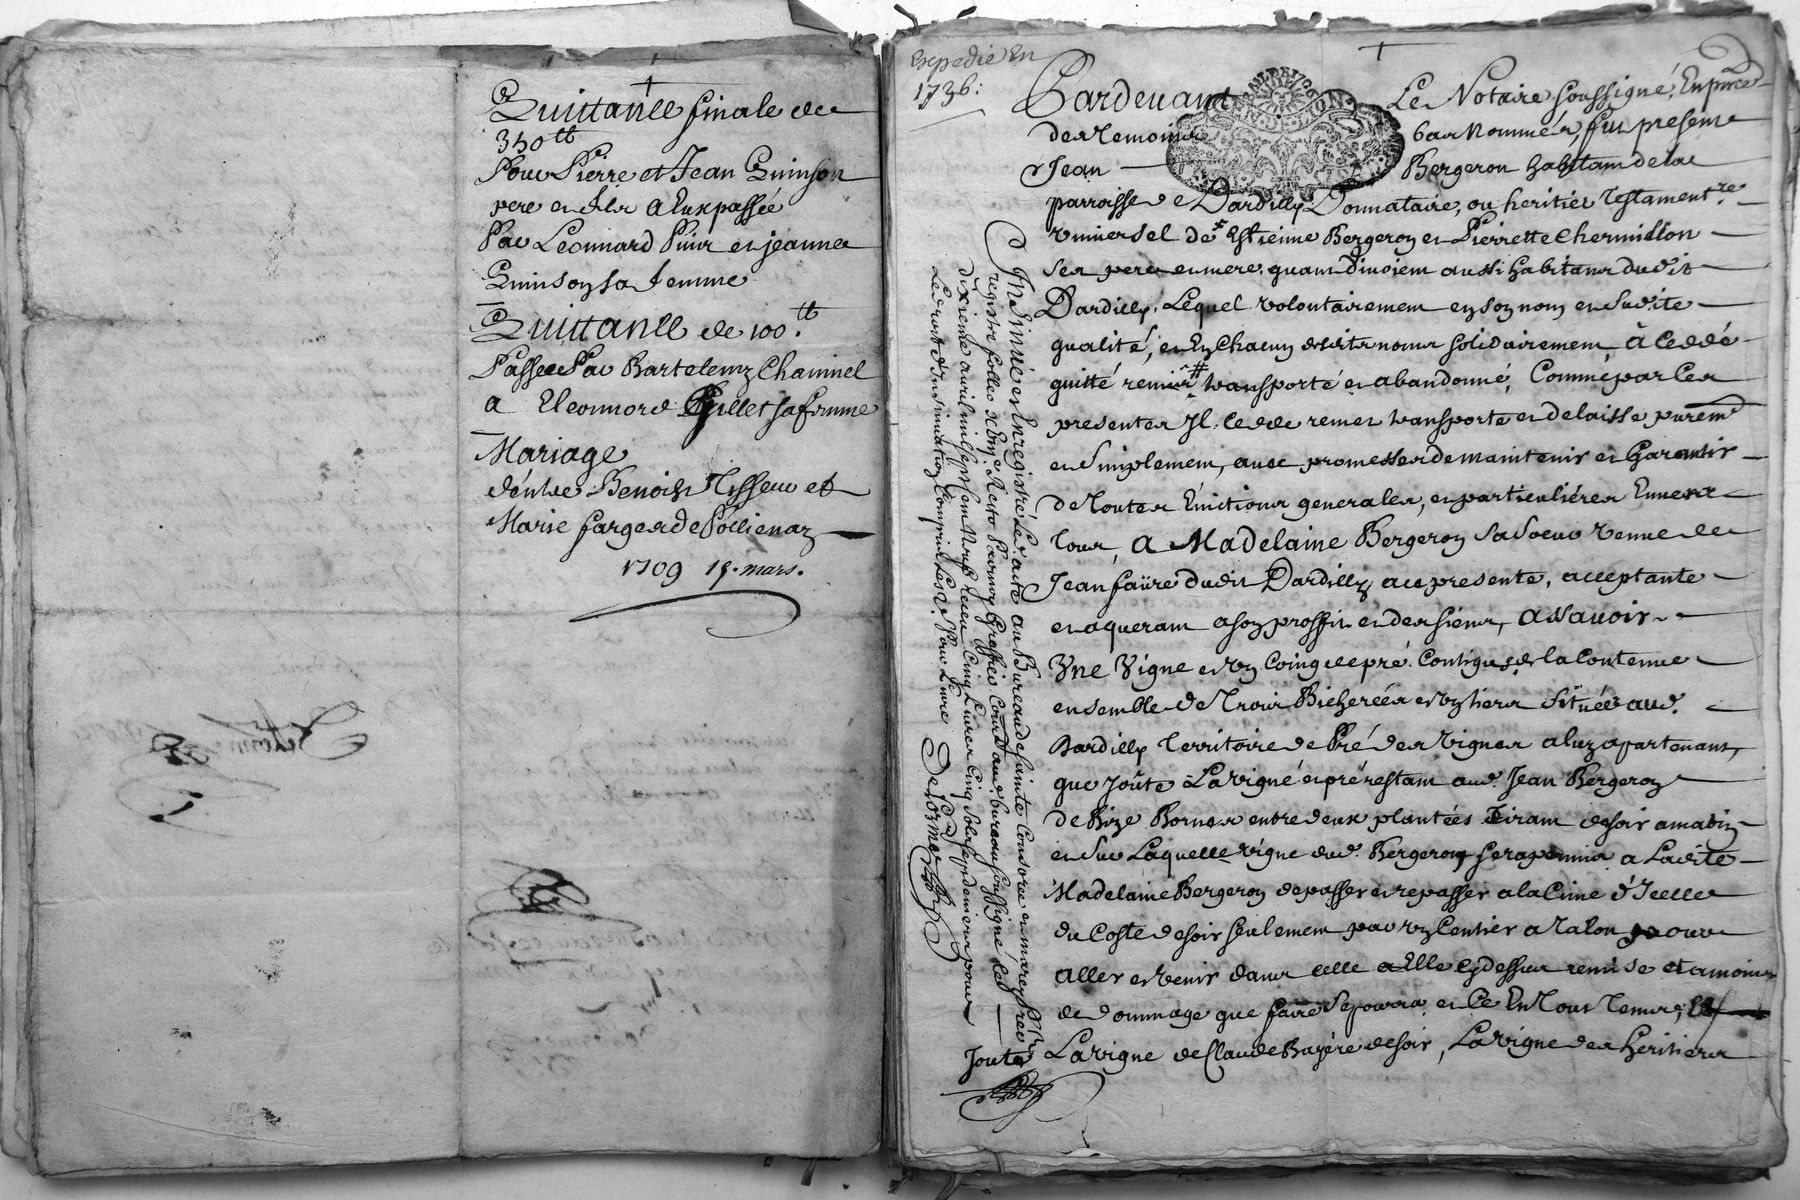 Quittance finale de
350tt
Pour Pierre et Jean Guinson
pere et fils a Eux passée
Par Leonnard Puir et jeanne
Guinson sa femme
Quittance de 100.tt
Passée Par Bartelemy Chainnel
a Eleonnord Gillet sa femme
Mariage
d'entre Benoist Tisseur et
Marie farges de Pollienay
1709 15. mars.
Expedié En
1736:
Pardevant Le Notaire soussigné, En pnce
des temoins bas Nommés, fut presen
Jean Bergeron habitant de la
parroisse de Dardilly Donnataire, ou heritier Testamentre
universel de Estienne Bergeron et Pierrette Chermillon
ses pere et mere, quand vivoient aussi habitans dudit
Dardilly, Lequel volontairement en son nom et sudite
qualité, et En chacun desdits noms solidairement, à Ceddé
quitté remis # transporté et abandonné, Comme par Ces
presentes Il Cedde remet transporte et delaisse purem
et simplement, avec promesses de maintenir et Garentir
de toutes Evictions generales, et particuliéres Envers
tous, A Madelaine Bergeron sa soeur veuve de
Jean faüre dudit Dardilly acy presente, acceptante
et aquerant a son proffit et des siens, Assavoir
Une Vigne et un Coing de pré Contigus de la Contenue
ensemble de trois Bicherées et un tiers située aud.
Dardilly territoire de Pré des Vignes a luy apartenant,
que Joûte La vigne et pré restant aud. Jean Bergeron
de Bize Bornes entre deux plantées tirant de soir a matin
et sur Laquelle vigne dud. Bergeron sera permis a Ladite
Madelaine Bergeron de passer et repasser a la Cime d'Icelle
du Costé de soir seulement par un sentier a talon pour
aller et venir dans celle a Elle cy dessus remise et a moins
de dommage que faire se pourra et Ce En tous tems, Et
Joute La vigne de Claude Bayére de soir, La Vigne des heritiers
Insinué et Enregistré Le acte au Bureau de sainte Consorce et marcy
registre folleo Recto Par moy Greffier Com aud. bureau soussigné le
dixieme avril mil sept cent neuf receu Cinq Livres Cinq sols deniers pour
Le droit d'Insinuation Compris Les Pour Livre Delorme